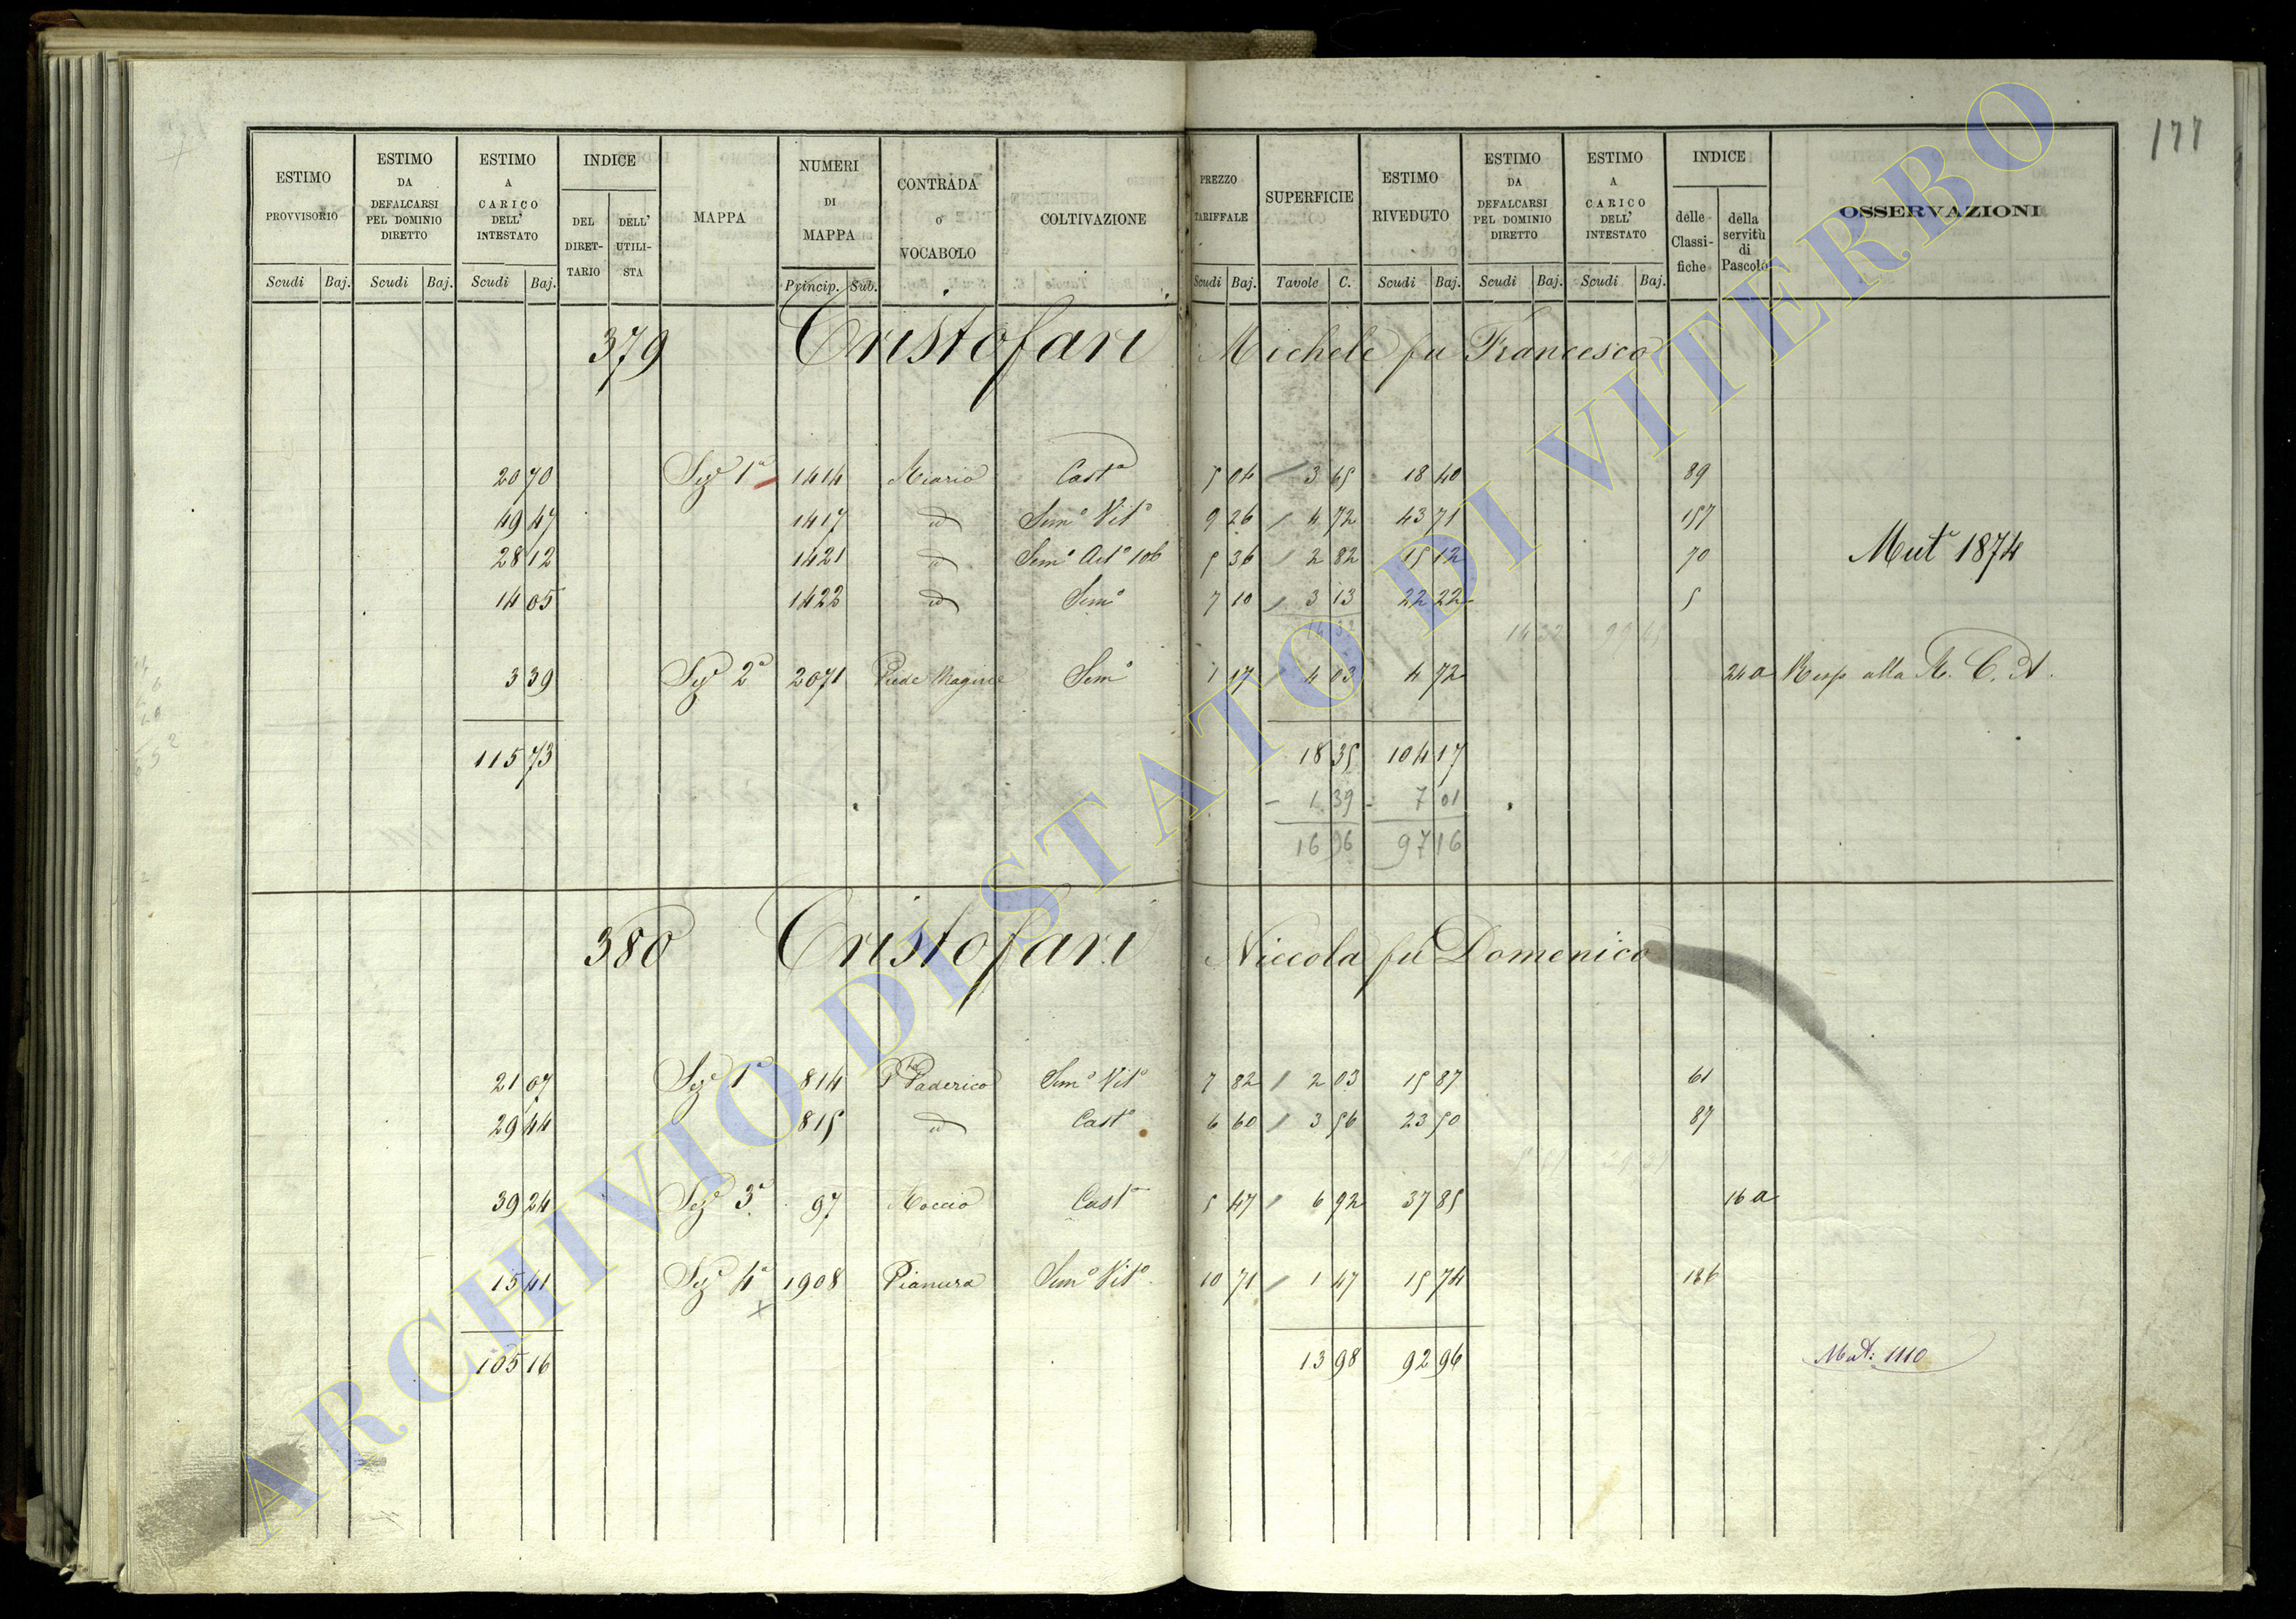 177
ESTIMO PROVVISORIO Scudi Baj.
ESTIMO DA DEFALCARSI PEL DOMINIO DIRETTO Scudi Baj.
ESTIMO A CARICO DELL' INTESTATO Scudi Baj.
INDICE DEL DIRET-TARIO DELL' UTILI-STA
MAPPA
NUMERI DI MAPPA Princip. Sub.
CONTRADA o VOCABOLO
COLTIVAZIONE
PREZZO TARIFFALE Scudi Baj.
SUPERFICIE Tavole C.
ESTIMO RIVEDUTO Scudi Baj.
ESTIMO DA DEFALCARSI PEL DOMINIO DIRETTO Scudi Baj.
ESTIMO A CARICO DELL' INTESTATO Scudi Baj.
INDICE delle Classi-fiche della servitù di Pascolo
OSSERVAZIONI
379 Cristofari Michele fu Francesco
20 70 Sez 1a 1414 Miario Casto 5 04 3 65 18 40 89
49 47 1417 id Semo Vito 9 26 4 72 43 71 157
28 12 1421 id Semo 5 36 2 82 15 12 70 Muta 1874
14 05 1422 id Semo 7 10 3 13 22 22 5
14 32
3 39 Sez 2a 2071 Piede Semo 1 17 4 03 4 72 24 a Risp alla R. C. A.
115 73 18 35 104 17
- 1 39 - 7 01
16 96 97 16
380 Cristofari Niccola fu Domenico
21 07 Sez 1a 814 Paderico Semo Vito 7 82 2 03 15 87 61
29 44 815 id Casto 6 60 3 56 23 50 87
39 24 Sez 3a 97 Roccio Casto 5 47 6 92 37 85 16 a
15 41 Sez 4a 1908 Pianura Semo Vito 10 71 1 47 15 74 186
x
105 16 13 98 92 96 Mut: 1110
ARCHIVIO DI STATO DI VITERBO